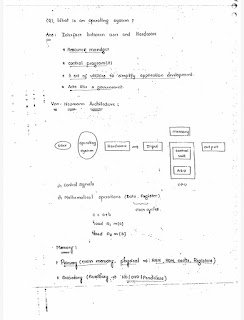 (Q). What is an operating system?
Ans: Interface between user and Hardware
* Resource manager
* control program(s)
* A set of utilities to simplify application development
* Acts like a government
Von-Neumann Architecture:
memory
User
operating system
Hardware
Input
control unit
ALU
output
CPU
i) Control signals
ii) Mathematical operations (Data, Register)
c = a+b
Memory:
* Primary (main memory, physical m): RAM, ROM, cache, Registers)
* Secondary (Auxiliary,